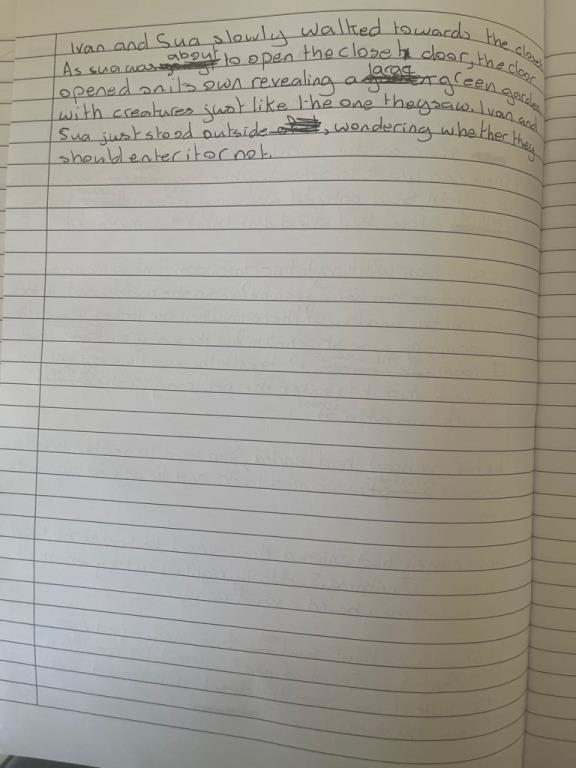 Ivan and Sua slowly walked towards the closet
As sua was about to open the closet door, the door
opened on its own revealing a large green garden
with creatures just like the one they saw. Ivan and
Sua just stood outside, wondering whether they
should enter it or not.